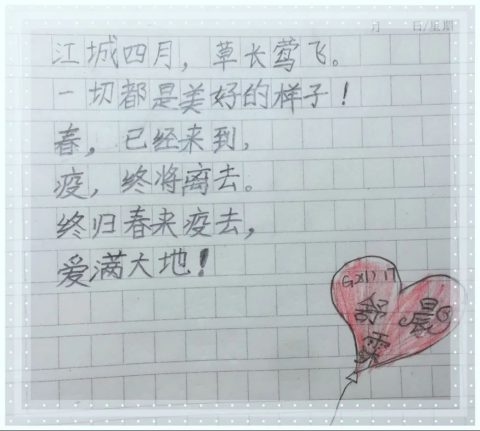 月 日/星期
江城四月，草长莺飞。
一切都是美好的样子！
春，已经来到，
疫，终将离去。
终归春来疫去，
爱满大地！
晨